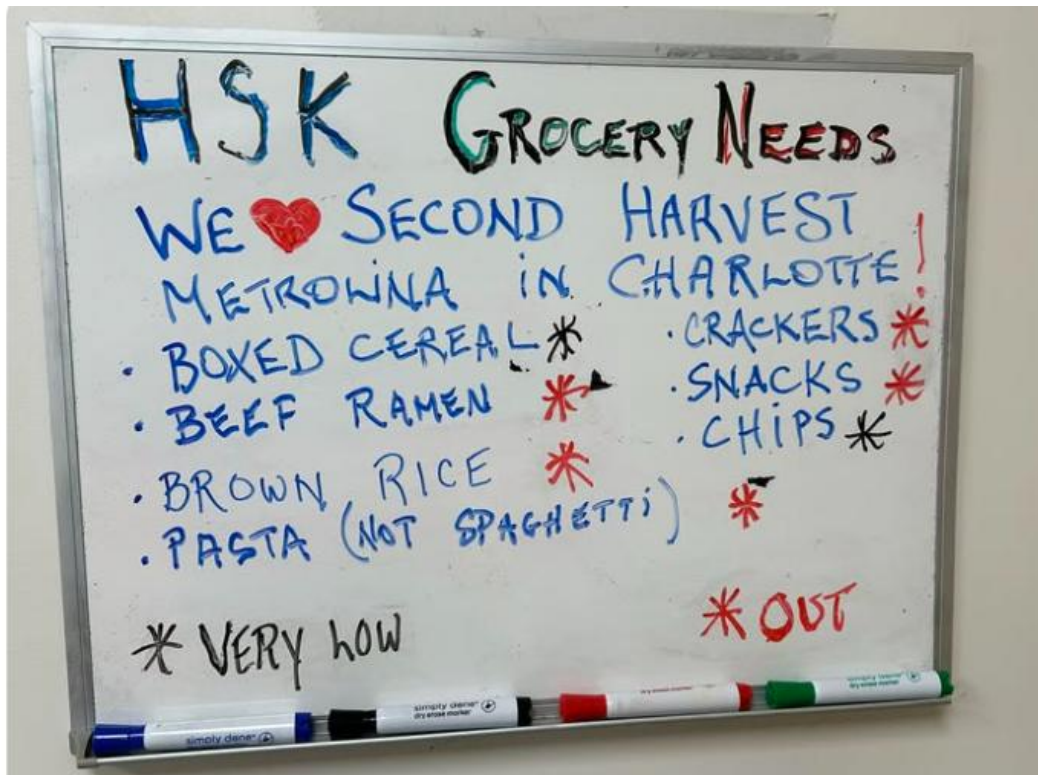 HSK GROCERY NEEDS
WE ❤ SECOND HARVEST
METROLINA IN CHARLOTTE!
• BOXED CEREAL *
• BEEF RAMEN *
• BROWN RICE *
• PASTA (NOT SPAGHETTI) *
• CRACKERS *
• SNACKS *
• CHIPS *
* VERY LOW
* OUT
simply done
simply done
dry erase marker
dry erase marker
simply done
dry erase marker